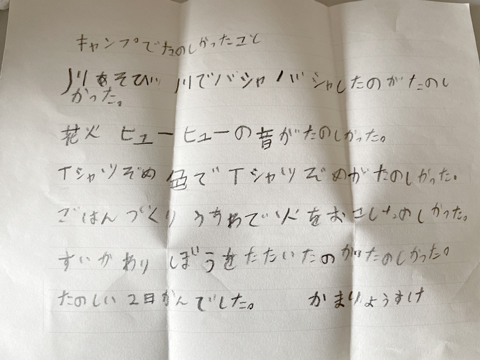 キャンプでたのしかったこと
川あそび 川でバシャバシャしたのがたのし
かった。
花火 ヒューヒューの音がたのしかった。
Tシャツぞめ 色でTシャツぞめがたのしかった。
ごはんづくり うちわで火をおこし のしかった。
すいかわり ぼうをたたいたのがたのしかった。
たのしい2日かんでした。 かまりょうすけ